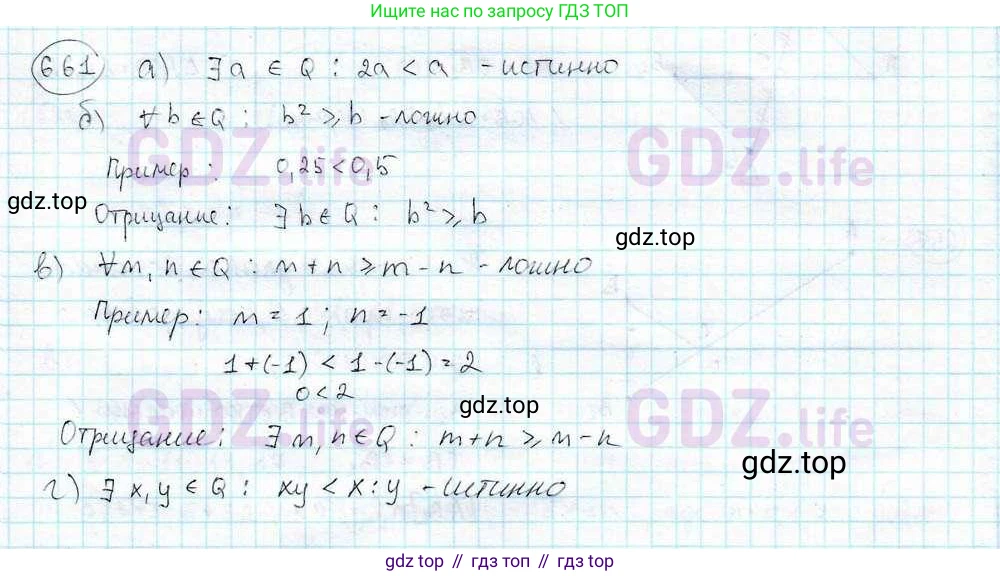 Ищите нас по запросу ГДЗ ТОП
661 а) ∃ a ∈ Q : 2a < a - истинно
б) ∀ b ∈ Q : b² ⩾ b - ложно
GDZ.life GDZ.life
Пример : 0,25 < 0,5
gdz.top
Отрицание : ∃ b ∈ Q : b² ⩾ b
gdz.top
в) ∀ m, n ∈ Q : m + n ⩾ m - n - ложно
Пример : m = 1 ; n = -1
1 + (-1) < 1 - (-1) = 2
0 < 2
gdz.top
GDZ.life GDZ.life
Отрицание : ∃ m, n ∈ Q : m + n ⩾ m - n
gdz.top
г) ∃ x, y ∈ Q : xy < x : y - истинно
gdz top // гдз топ // gdz.top